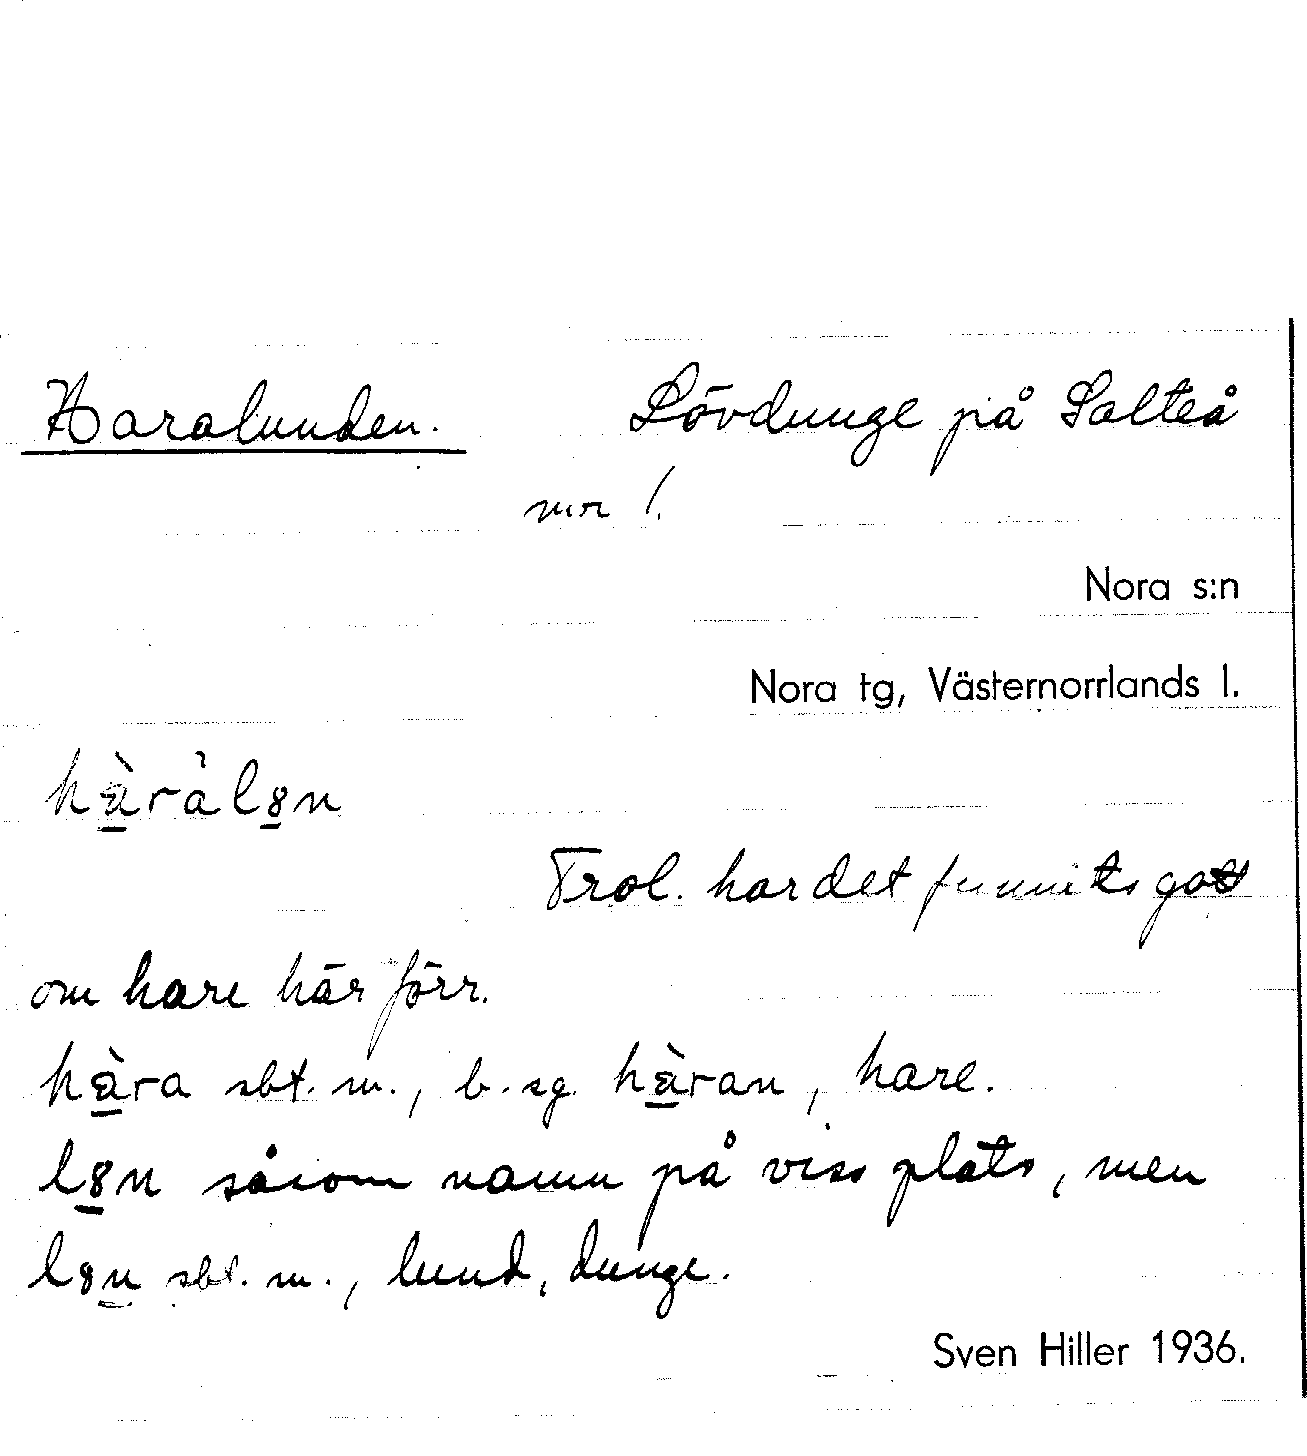 Haralunden. Lövdunge på Salteå
nor /.
Nora s:n
Nora tg, Västernorrlands l.
hàràl8n
Trol. har det funnits gott
om hare här förr.
hàra sbt. m., b. sg. hàran, hare.
l8n såsom namn på viss plats, men
l8n sbt. m., lund, dunge.
Sven Hiller 1936.